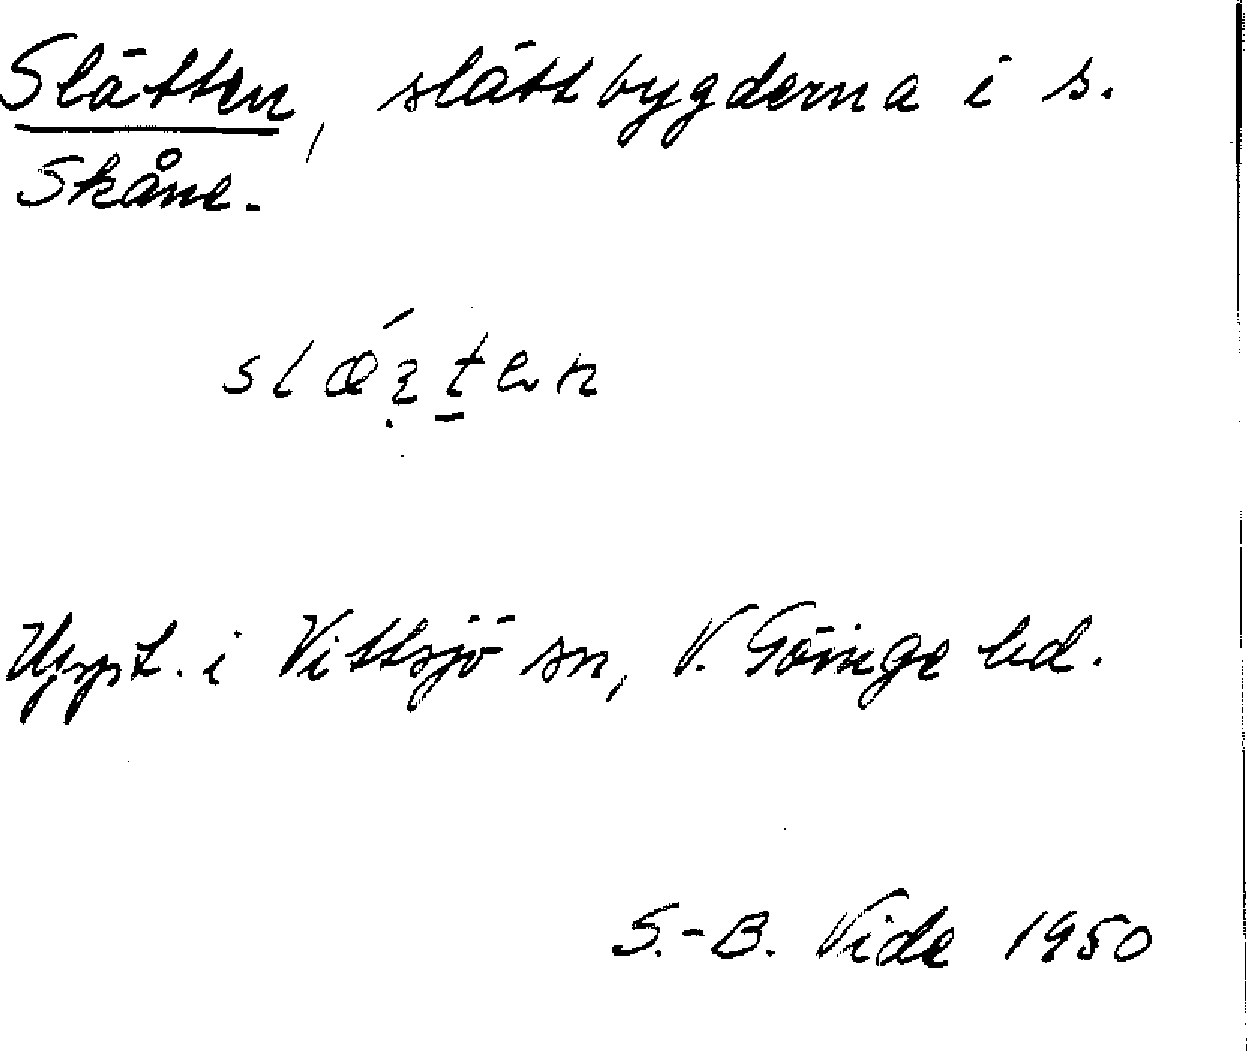 Slätten, slättbygderna i s.
Skåne.
Uppt. i Vittsjö sn, V. Göinge hd.
S.-B. Vide 1950